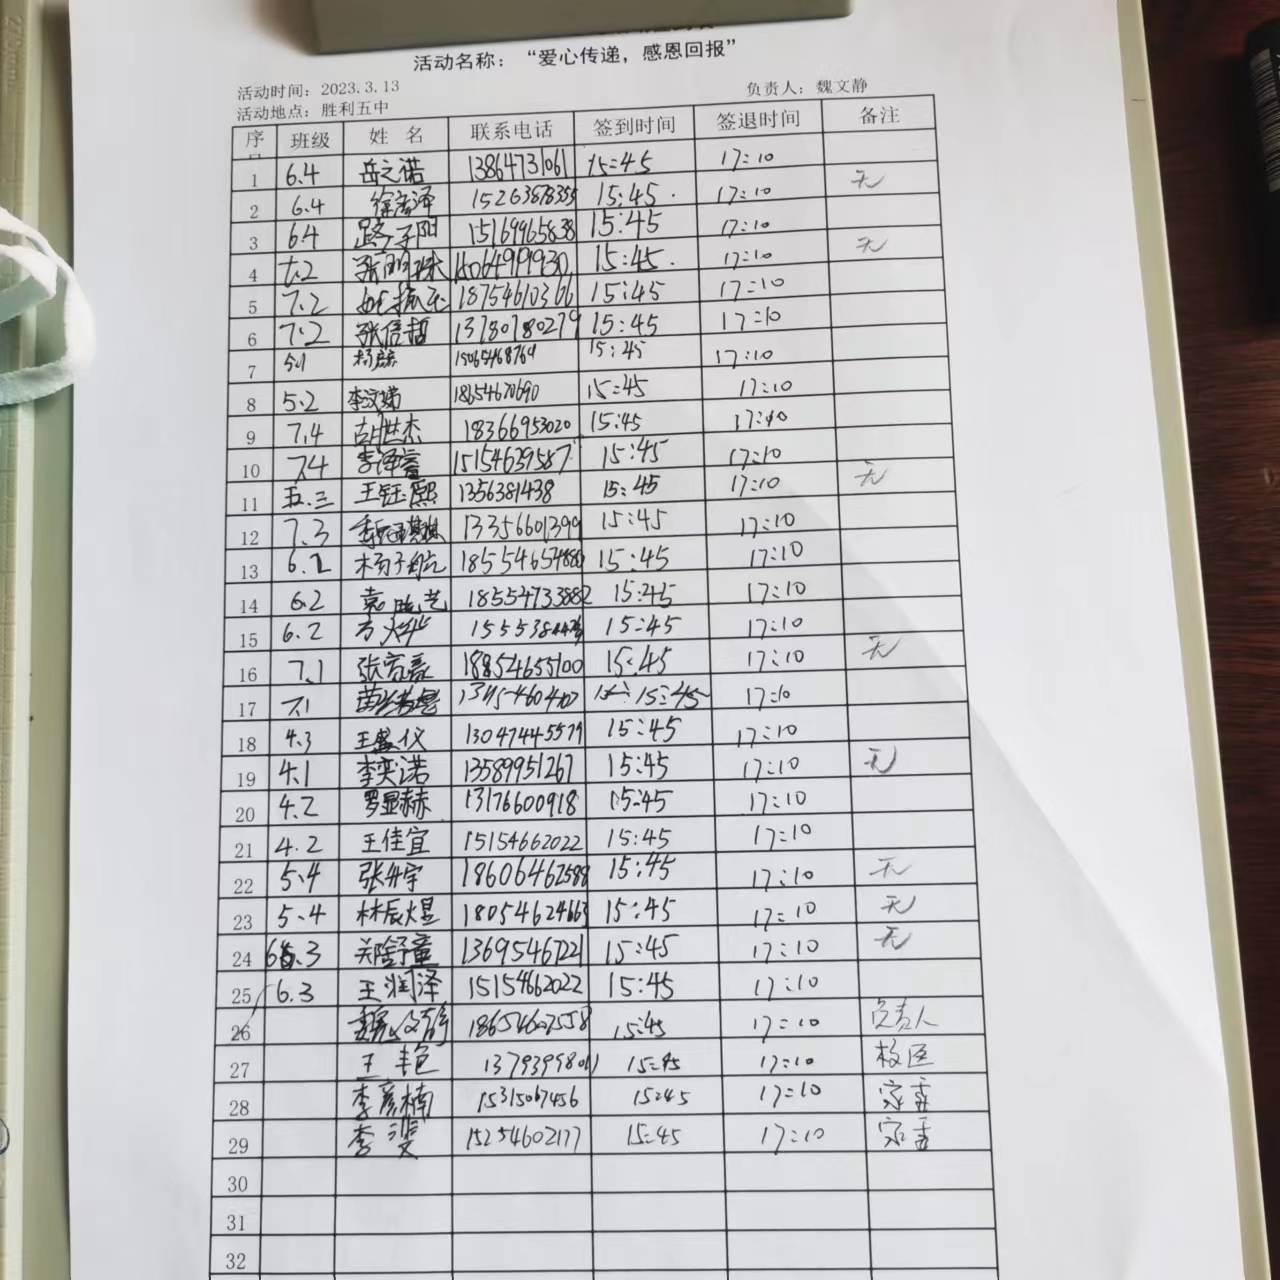 活动名称：“爱心传递，感恩回报”
活动时间：2023.3.13 负责人：魏文静
活动地点：胜利五中
序 班级 姓 名 联系电话 签到时间 签退时间 备注
1 6.4 岳之诺 13864731061 15:45 17:10
2 6.4 15263878355 15:45 17:10 无
3 6.4 路子阳 15169965838 15:45 17:10
4 7.2 张明珠 15:45 17:10 无
5 7.2 18754610306 15:45 17:10
6 7.2 张信哲 13780780279 15:45 17:10
7 5.1 15065468769 15:45 17:10
8 5.2 李汶娣 18654670690 15:45 17:10
9 7.4 胡世杰 18366953020 15:45 17:10
10 7.4 李泽睿 15154639587 15:45 17:10
11 五.三 王钰熙 1356381438 15:45 17:10 无
12 7.3 13356601399 15:45 17:10
13 6.2 杨子航 15:45 17:10
14 6.2 袁晓艺 18554733882 15:45 17:10
15 6.2 15:45 17:10
16 7.1 张家豪 18854655100 15:45 17:10 无
17 7.1 15:45 17:10
18 4.3 王盛仪 13047445579 15:45 17:10
19 4.1 李奕诺 13589951267 15:45 17:10 无
20 4.2 罗显赫 13176600918 15:45 17:10
21 4.2 王佳宜 15154662022 15:45 17:10
22 5.4 张升宇 18606462588 15:45 17:10 无
23 5.4 林辰煜 18054624663 15:45 17:10 无
24 6.3 郑舒童 13695467221 15:45 17:10 无
25 6.3 王润泽 15154662022 15:45 17:10
26 魏文静 18654607558 15:45 17:10 负责人
27 王艳 15:45 17:10 校区
28 李彦楠 15315067456 15:45 17:10 家委
29 李斐 15254602177 15:45 17:10 家委
30
31
32